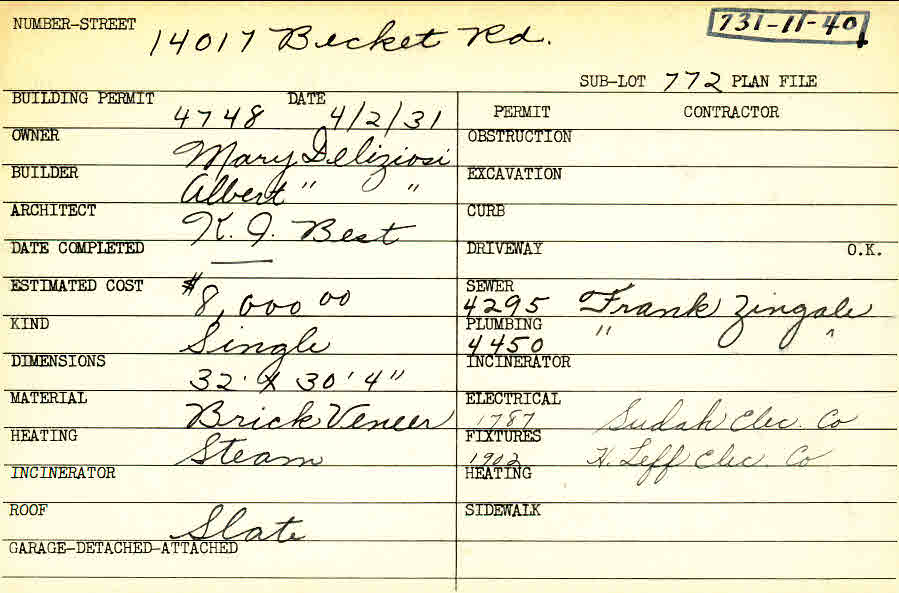 NUMBER-STREET 14017 Becket Rd. 731-11-40
SUB-LOT 772 PLAN FILE
BUILDING PERMIT 4748 DATE 4/2/31
PERMIT CONTRACTOR
OWNER Mary Deliziosi
OBSTRUCTION
BUILDER Albert " "
EXCAVATION
ARCHITECT K. J. Best
CURB
DATE COMPLETED —
DRIVEWAY O.K.
ESTIMATED COST $8,000 00
SEWER 4295 Frank Zingale
KIND Single
PLUMBING 4450 " "
DIMENSIONS 32' X 30' 4"
INCINERATOR
MATERIAL Brick Veneer
ELECTRICAL 1787 Sudah Elec. Co
HEATING Steam
FIXTURES 1902 H. Leff Elec. Co
INCINERATOR
HEATING
ROOF Slate
SIDEWALK
GARAGE-DETACHED-ATTACHED